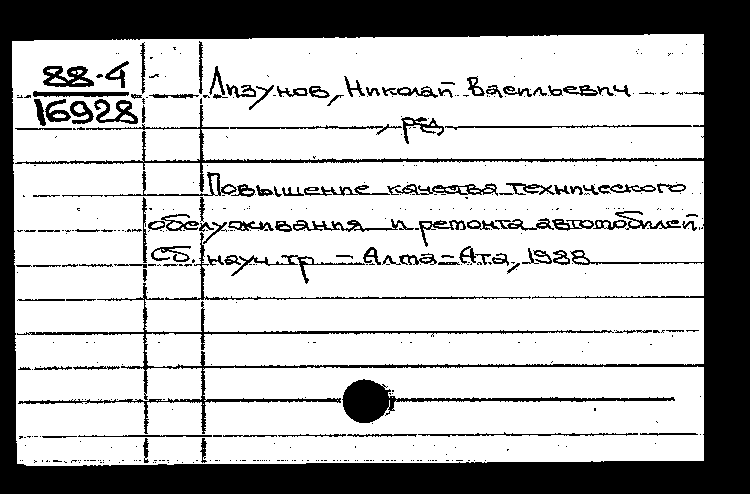 88-4
16928
Лизунов, Николай Васильевич
, ред.
Повышение качества технического
обслуживания и ремонта автомобилей
Сб. науч. тр. - Алма-Ата, 1988